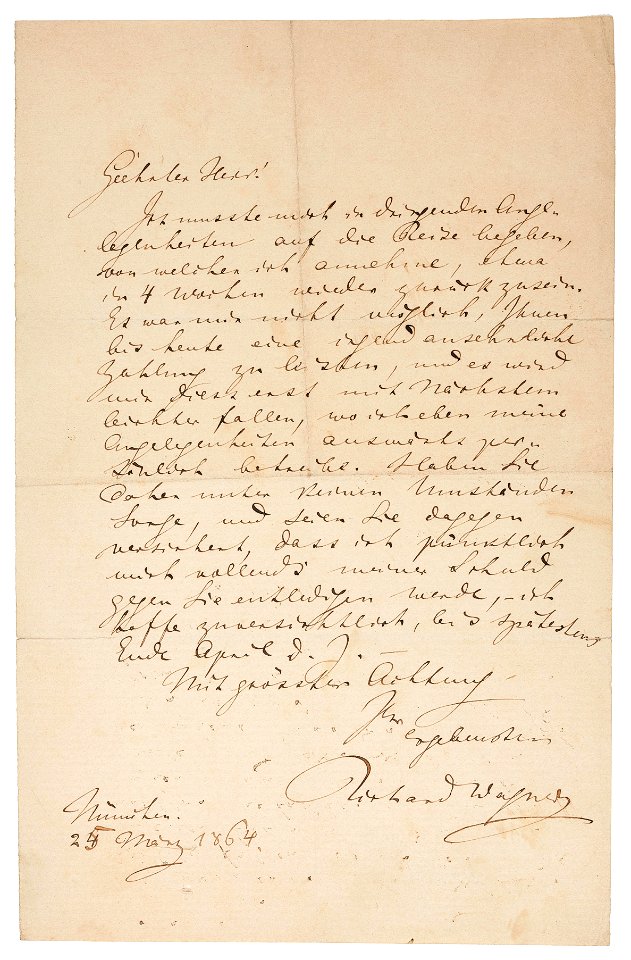 Geehrter Herr!
Ich musste mich in dringenden Ange-
legenheiten auf die Reise begeben,
von welcher ich annehme, etwa
in 4 Wochen wieder zurück zu sein.
Es war mir nicht möglich, Ihnen
bis heute eine irgend ansehnliche
Zahlung zu leisten, und es wird
mir diess erst mit Nächstem
leichter fallen, wo ich eben meine
Angelegenheiten auswärts per-
sönlich betreibe. Haben Sie
daher unter keinen Umständen
Sorge, und seien Sie dagegen
versichert, dass ich pünktlich
mich vollends meiner Schuld
gegen Sie entledigen werde, – ich
hoffe zuversichtlich, bis spätestens
Ende April d. J. –
Mit grösster Achtung
Ihr
ergebenster
Richard Wagner
München.
25 März 1864.